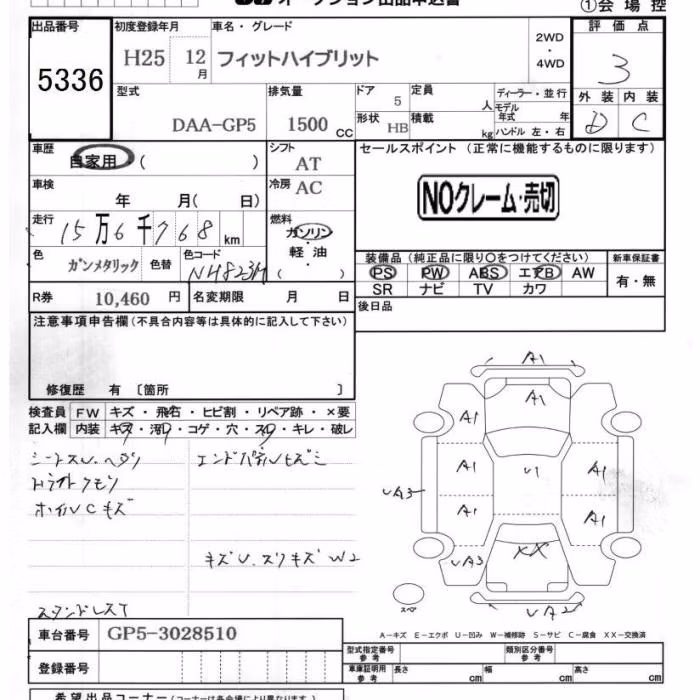 オークション出品申込書 ①会場控
出品番号 初度登録年月 車名・グレード 評価点
5336 H25 12月 フィットハイブリット 2WD・4WD 3
型式 排気量 ドア 定員 ディーラー・並行 外装 内装
DAA-GP5 1500cc 5 人 モデル年式 年 D C
形状 HB 積載 kg ハンドル 左・右
車歴 シフト セールスポイント (正常に機能するものに限ります)
自家用 ( ) AT
車検 冷房 AC NOクレーム・売切
年 月( 日)
走行 15万6千768km 燃料 ガソリン・軽油 ( ・ )
色 ガンメタリック 色替 色コード NH823M
装備品 (純正品に限り○をつけてください) 新車保証書
PS PW ABS エアB AW 有・無
SR ナビ TV カワ
R券 10,460円 名変期限 月 日 後日品
注意事項申告欄 (不具合内容等は具体的に記入して下さい)
修復歴 有 〔箇所 〕
検査員記入欄 FW キズ・飛石・ヒビ割・リペア跡・×要
内装 キズ・汚れ・コゲ・穴・スレ・キレ・破レ
シートスレ・ヘタリ エンドパネルキズミ
ライトクモリ
ホイルCキズ
キズU、スリキズ W2
スタンドレスT
A1
A1
A1
A1 U1 A1
UA3
A1 A1
UA3 XX
スペ UA2
A-キズ E-エクボ U-凹み W-補修跡 S-サビ C-腐食 XX-交換済
車台番号 GP5-3028510
登録番号
型式指定番号 参考 類別区分番号 参考
車庫証明用 参考 長さ cm 幅 cm 高さ cm
希望出品コーナー (コーナーは各会場により異なります)